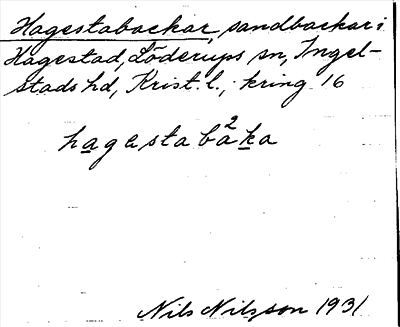 Hagestabackar, sandbackar i
Hagestad, Löderups sn, Ingel-
stads hd, Krist. l., kring 16
hagestaba²ka
Nils Nilsson 1931